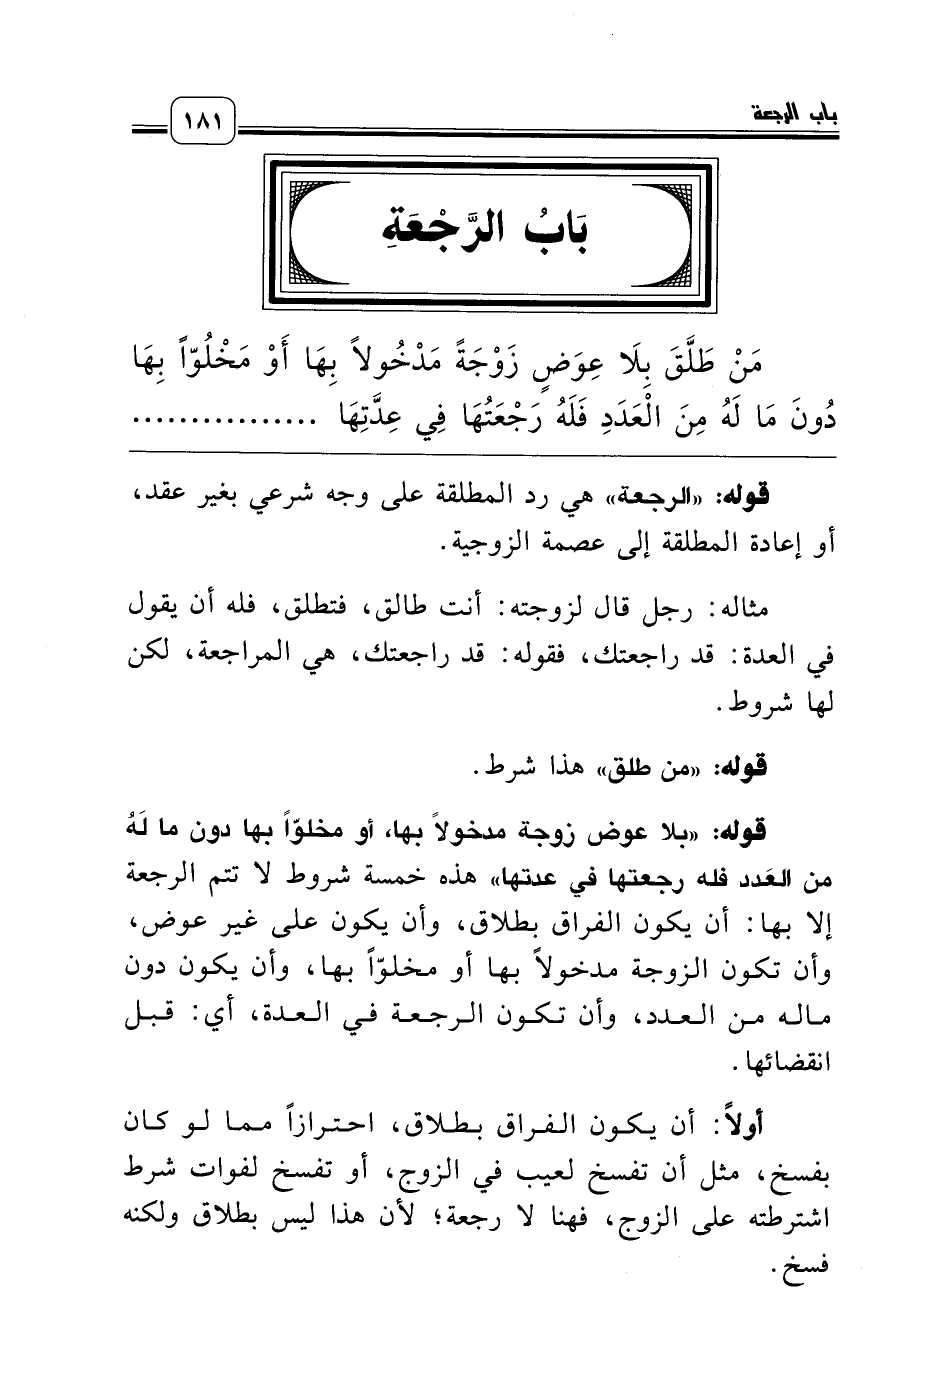 باب الرجعة
١٨١
بَابُ الرَّجْعَةِ
مَنْ طَلَّقَ بِلَا عِوَضٍ زَوْجَةً مَدْخُولاً بِهَا أَوْ مَخْلُوّاً بِهَا
دُونَ مَا لَهُ مِنَ الْعَدَدِ فَلَهُ رَجْعَتُهَا فِي عِدَّتِهَا ................
قوله: «الرجعة» هي رد المطلقة على وجه شرعي بغير عقد،
أو إعادة المطلقة إلى عصمة الزوجية.
مثاله: رجل قال لزوجته: أنت طالق، فتطلق، فله أن يقول
في العدة: قد راجعتك، فقوله: قد راجعتك، هي المراجعة، لكن
لها شروط.
قوله: «من طلق» هذا شرط.
قوله: «بلا عوض زوجة مدخولاً بها، أو مخلوّاً بها دون ما لَهُ
من العَدد فله رجعتها في عدتها» هذه خمسة شروط لا تتم الرجعة
إلا بها: أن يكون الفراق بطلاق، وأن يكون على غير عوض،
وأن تكون الزوجة مدخولاً بها أو مخلوّاً بها، وأن يكون دون
ماله من العدد، وأن تكون الرجعة في العدة، أي: قبل
انقضائها.
أولاً: أن يكون الفراق بطلاق، احترازاً مما لو كان
بفسخ، مثل أن تفسخ لعيب في الزوج، أو تفسخ لفوات شرط
اشترطته على الزوج، فهنا لا رجعة؛ لأن هذا ليس بطلاق ولكنه
فسخ.